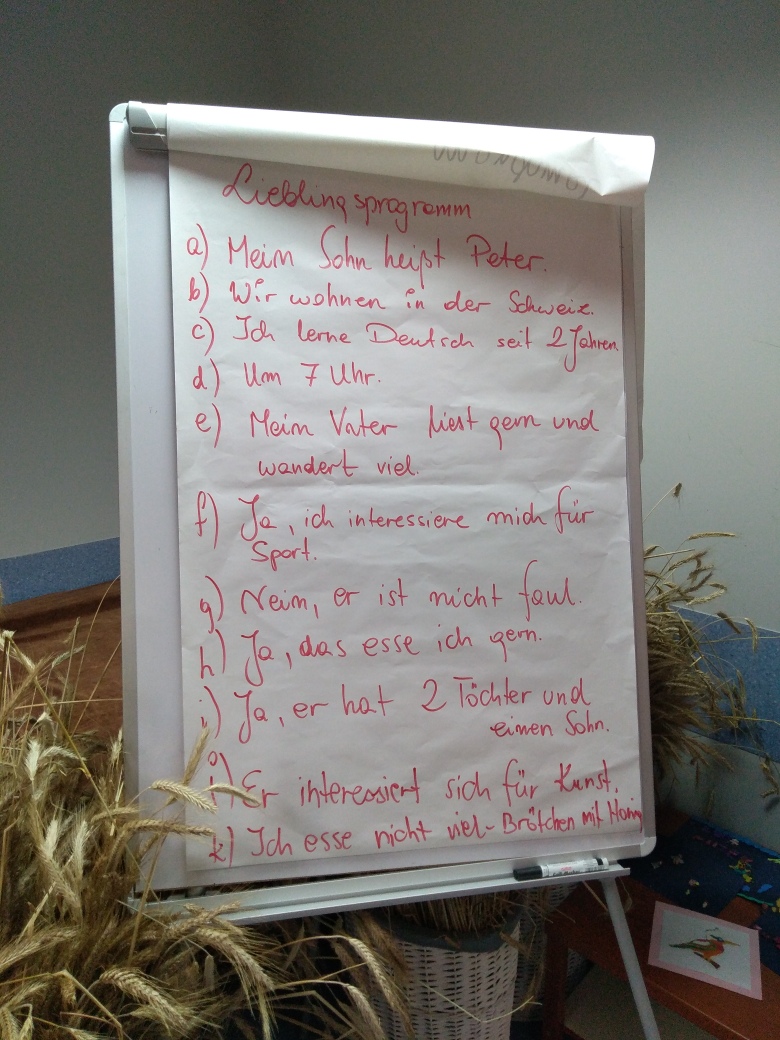 Lieblingsprogramm
a) Mein Sohn heißt Peter.
b) Wir wohnen in der Schweiz.
c) Ich lerne Deutsch seit 2 Jahren
d) Um 7 Uhr.
e) Mein Vater liest gern und
wandert viel.
f) Ja, ich interessiere mich für
Sport.
g) Nein, er ist nicht faul.
h) Ja, das esse ich gern.
i) Ja, er hat 2 Töchter und
einen Sohn.
j) Er interessiert sich für Kunst.
k) Ich esse nicht viel - Brötchen mit Honig